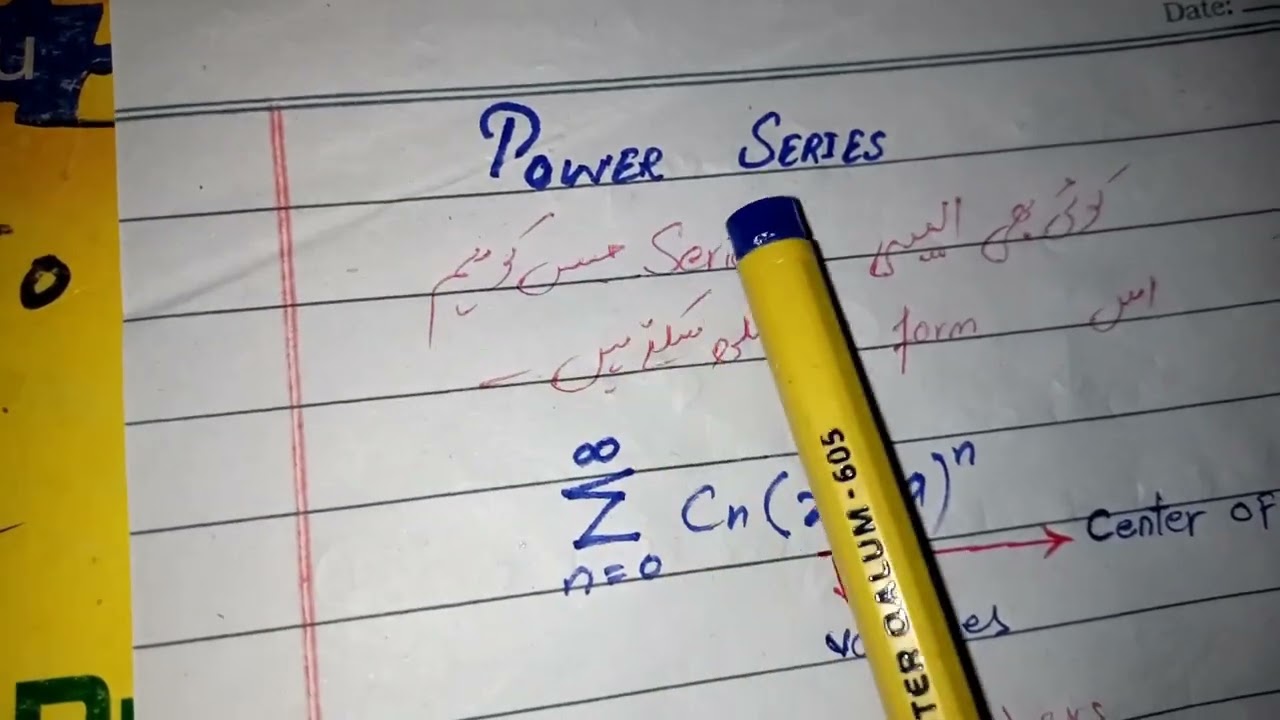 Date:
POWER SERIES
کوئی بھی ایسی Seri جس کو ہم
اس form سکتے ہیں ۔
∞
Σ Cn( )^n
n=0
Center OF
es
TER QALUM-605